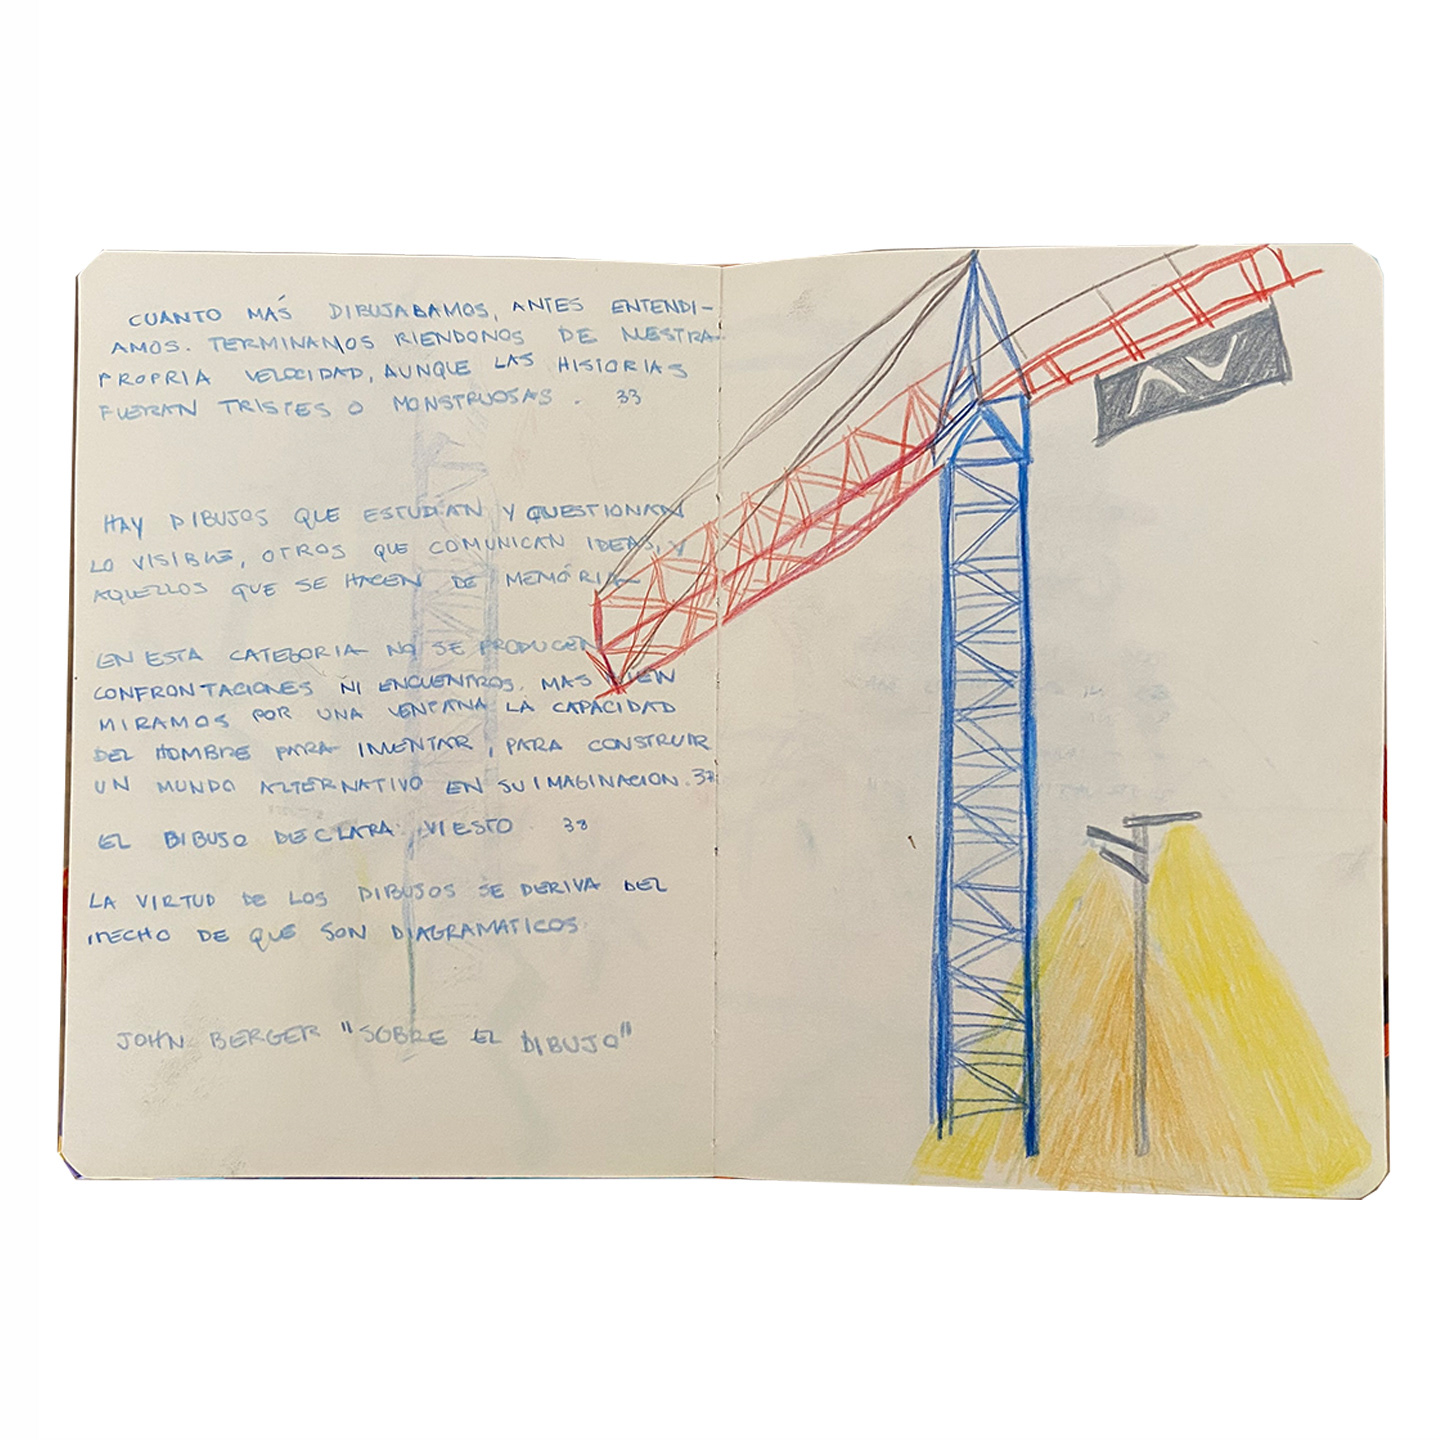 CUANTO MÁS DIBUJABAMOS, ANTES ENTENDI-
AMOS. TERMINAMOS RIENDONOS DE NUESTRA
PROPRIA VELOCIDAD, AUNQUE LAS HISTORIAS
FUERAN TRISTES O MONSTRUOSAS. 33
HAY DIBUJOS QUE ESTUDIAN Y QUESTIONAN
LO VISIBLE, OTROS QUE COMUNICAN IDEAS, Y
AQUELLOS QUE SE HACEN DE MEMÓRIA
EN ESTA CATEGORIA NO SE PRODUCEN
CONFRONTACIONES NI ENCUENTROS. MAS BIEN
MIRAMOS POR UNA VENTANA LA CAPACIDAD
DEL HOMBRE PARA INVENTAR, PARA CONSTRUIR
UN MUNDO ALTERNATIVO EN SU IMAGINACION. 37
EL DIBUJO DECLARA: VI ESTO 38
LA VIRTUD DE LOS DIBUJOS SE DERIVA DEL
HECHO DE QUE SON DIAGRAMATICOS
JOHN BERGER "SOBRE EL DIBUJO"